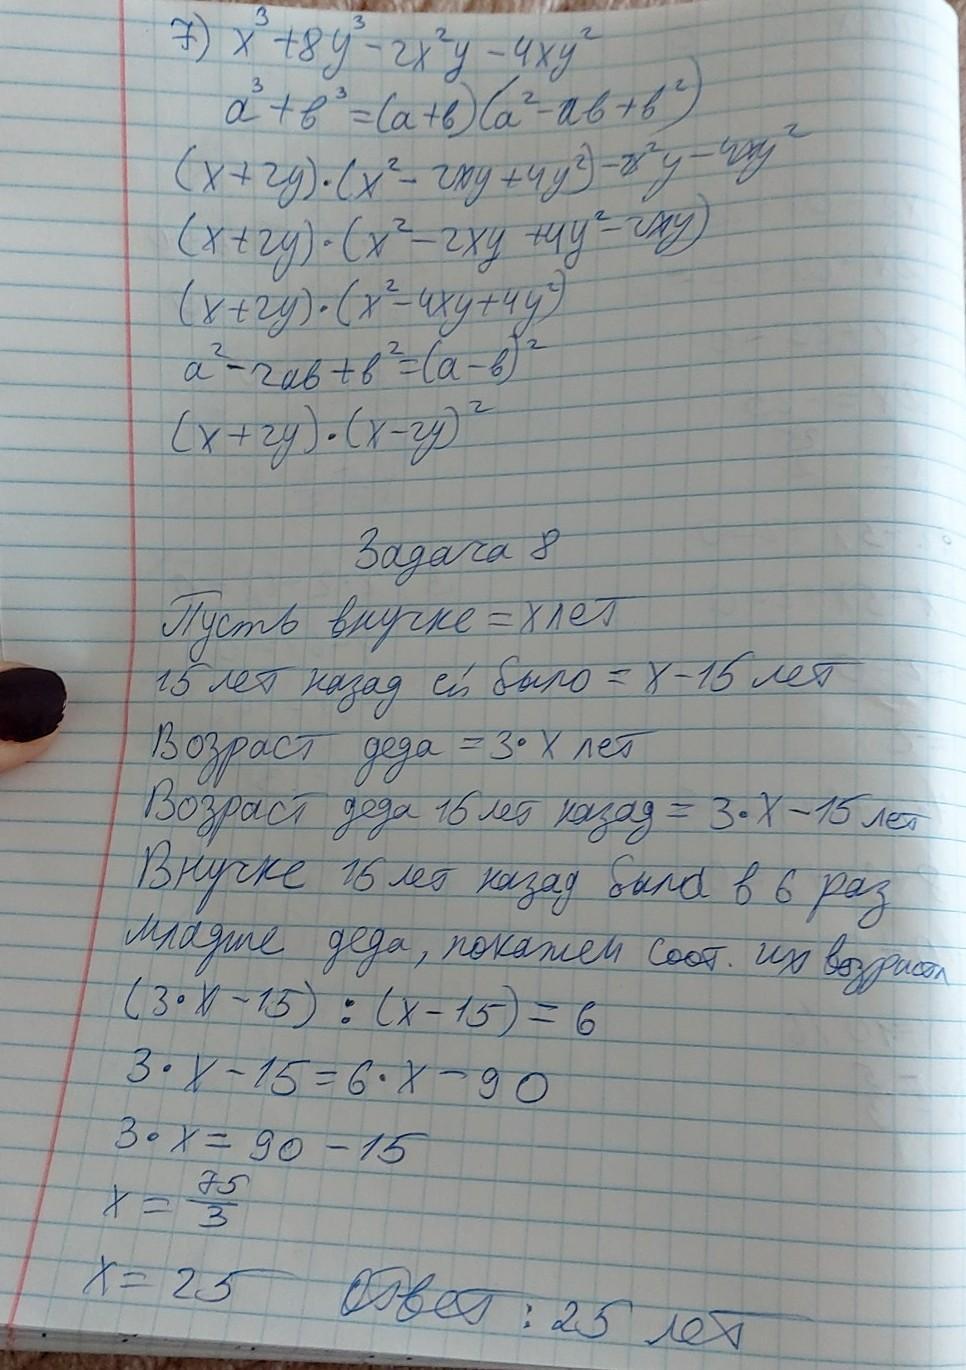 7) x³+8y³-2x²y-4xy²
a³+в³=(a+в)(a²-aв+в²)
(x+2y)·(x²-2xy+4y²)-2x²y-4xy²
(x+2y)·(x²-2xy+4y²-2xy)
(x+2y)·(x²-4xy+4y²)
a²-2aв+в²=(a-в)²
(x+2y)·(x-2y)²
Задача 8
Пусть внучке = x лет
15 лет назад ей было = x-15 лет
Возраст деда = 3·x лет
Возраст деда 15 лет назад = 3·x-15 лет
Внучке 15 лет назад была в 6 раз
младше деда, покажем соот. их возраста
(3·x-15) : (x-15) = 6
3·x-15=6·x-90
3·x=90-15
x = 75/3
x = 25 Ответ: 25 лет